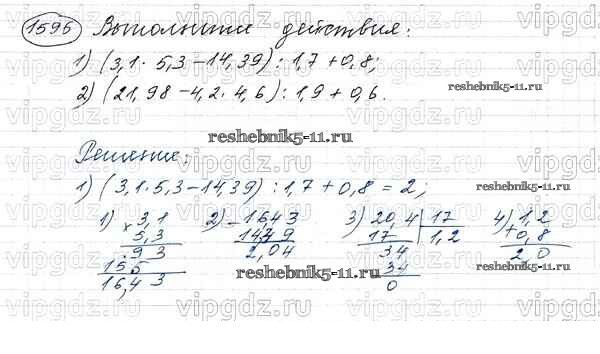 1595 Выполните действия:
1) (3,1 · 5,3 - 14,39) : 1,7 + 0,8;
2) (21,98 - 4,2 · 4,6) : 1,9 + 0,6.
reshebnik5-11.ru
reshebnik5-11.ru
Решение:
1) (3,1 · 5,3 - 14,39) : 1,7 + 0,8 = 2;
1) × 3,1 2) - 16,43 3) 20,4 | 17 4) + 1,2
5,3 14,39 17 1,2 0,8
93 2,04 34 2,0
155 34
16,43 0
reshebnik5-11.ru
reshebnik5-11.ru
vipgdz.ru vipgdz.ru vipgdz.ru